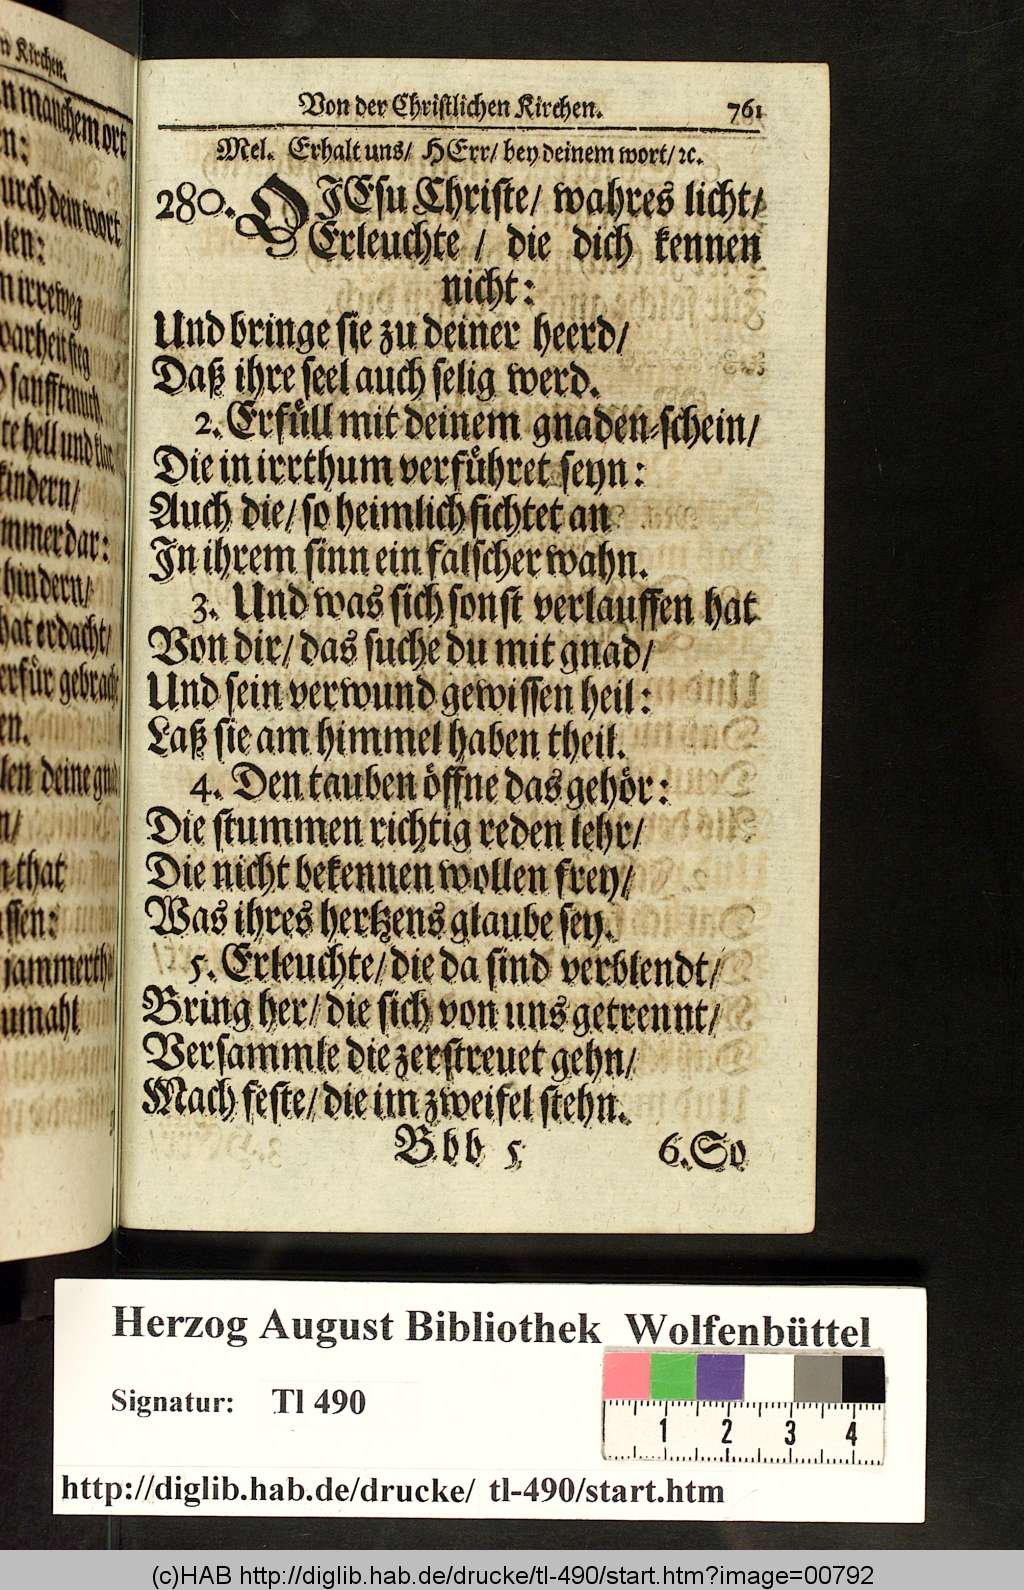 n Kirchen.
n manchem ort
en:
urch dein wort
len:
n irreweg
warheit steg
sanfftmuth
te hell und klar
kindern/
mmerdar:
hindern/
hat erdacht/
erfür gebracht
en.
len deine gnad
n/
n that
ssen:
jammerth
umahl
Von der Christlichen Kirchen. 761
Mel. Erhalt uns/ HErr/ bey deinem wort/ ꝛc.
280. O JEsu Christe/ wahres licht/
Erleuchte / die dich kennen
nicht:
Und bringe sie zu deiner heerd/
Daß ihre seel auch selig werd.
2. Erfüll mit deinem gnaden-schein/
Die in irrthum verführet seyn:
Auch die/ so heimlich fichtet an
In ihrem sinn ein falscher wahn.
3. Und was sich sonst verlauffen hat
Von dir/ das suche du mit gnad/
Und sein verwund gewissen heil:
Laß sie am himmel haben theil.
4. Den tauben öffne das gehör:
Die stummen richtig reden lehr/
Die nicht bekennen wollen frey/
Was ihres hertzens glaube sey.
5. Erleuchte/ die da sind verblendt/
Bring her/ die sich von uns getrennt/
Versammle die zerstreuet gehn/
Mach feste/ die im zweifel stehn.
Bbb 5 6. So
Herzog August Bibliothek Wolfenbüttel
Signatur: Tl 490
1 2 3 4
http://diglib.hab.de/drucke/ tl-490/start.htm
(c)HAB http://diglib.hab.de/drucke/tl-490/start.htm?image=00792